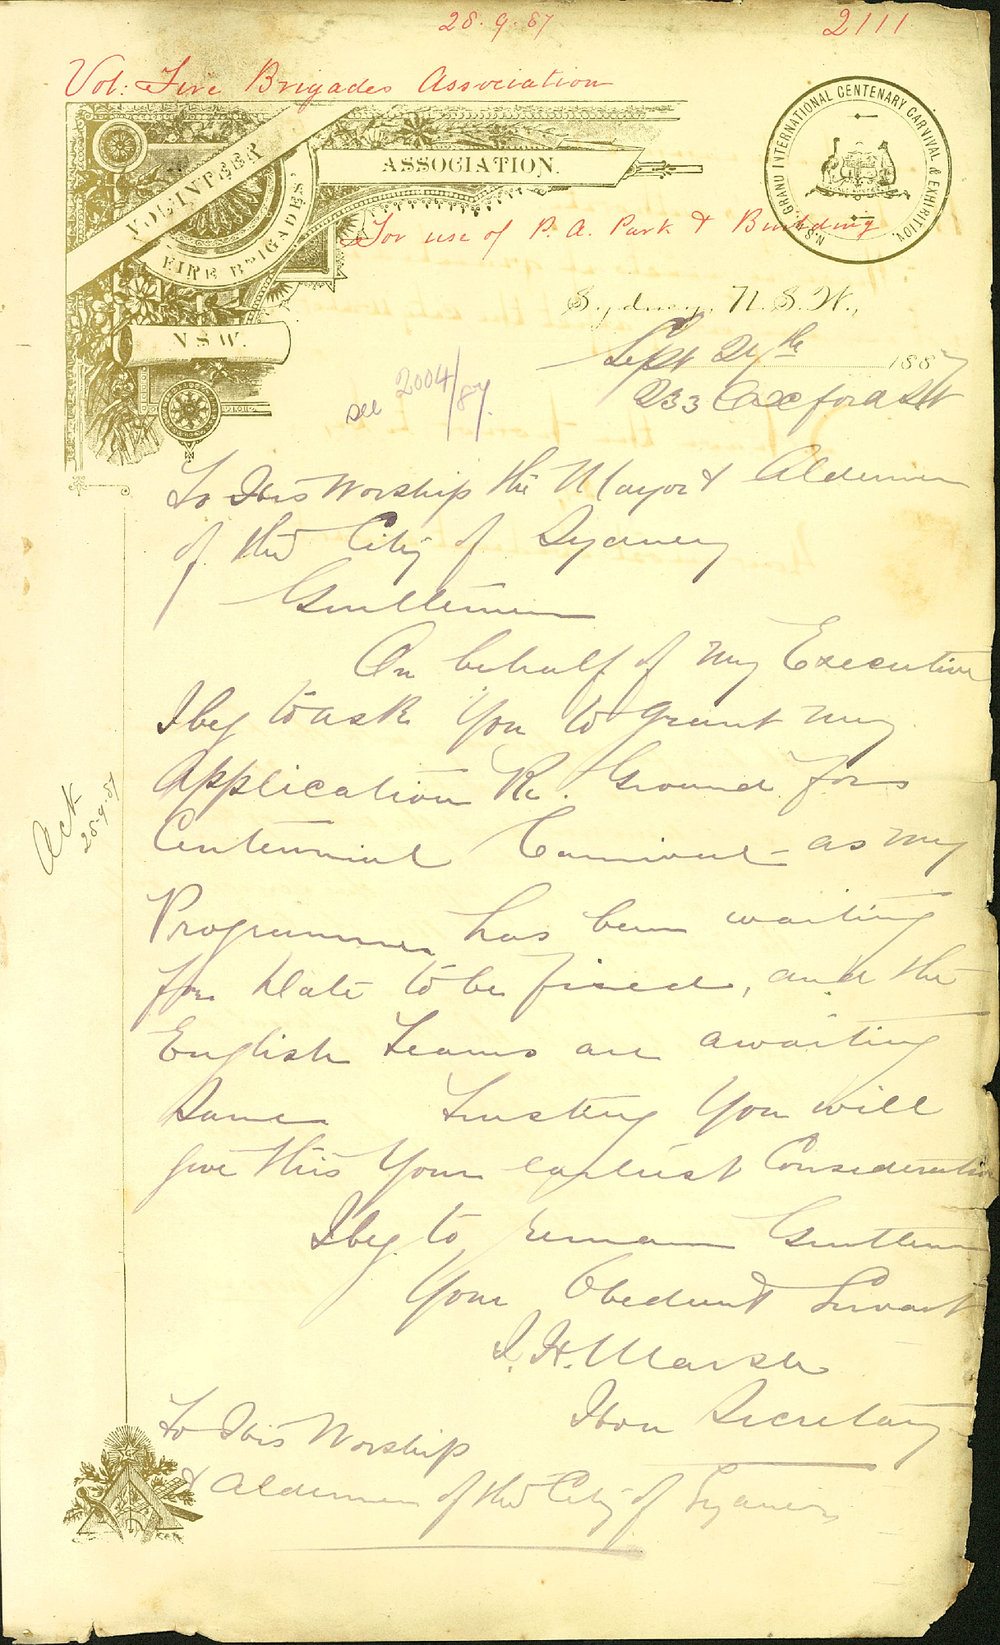 28.9.87
2111
Vol: Fire Brigades Association
VOLUNTEER
FIRE BRIGADES'
ASSOCIATION.
N.S.W.
N.S.W. GRAND INTERNATIONAL CENTENARY CARVIVAL & EXHIBITION.
For use of P. A. Park & Building
Sydney, N.S.W.,
Sept 27th 1887
233 Oxford St
see 2004/87.
To His Worship the Mayor & Aldermen
of the City of Sydney
Gentlemen
On behalf of my Executive
I beg to ask You to grant my
Application Re. Ground for
Centennial Carnival - as my
Programme has been waiting
for Date to be fixed, and the
English Teams are awaiting
Same Trusting You will
give this Your earliest Consideration
I beg to remain Gentlemen
Your Obedient Servant
J. H. Marsh
Hon Secretary
Ack
28.9.87
To His Worship
& Aldermen of the City of Sydney